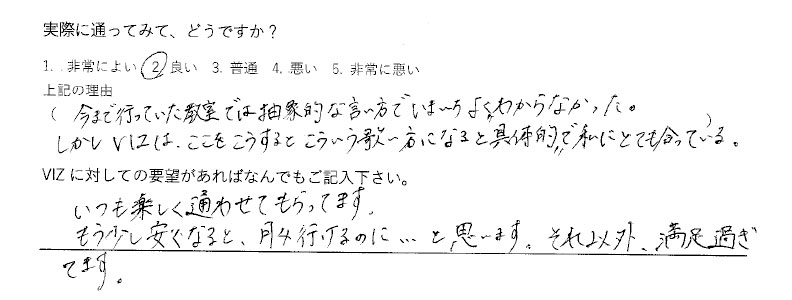 実際に通ってみて、どうですか？
1. 非常によい ②良い 3. 普通 4. 悪い 5. 非常に悪い
上記の理由
( 今まで行っていた教室では抽象的な言い方でいまいちよくわからなかった。
しかしVIZは、ここをこうするとこういう歌い方になると"具体的"で私にとても合っている。)
VIZに対しての要望があればなんでもご記入下さい。
いつも楽しく通わせてもらってます。
もう少し安くなると、月4行けるのに…と思います。それ以外、満足過ぎ
てます。